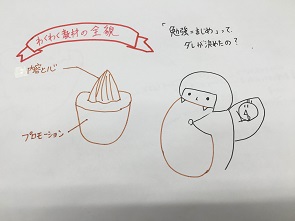 わくわく教材の全貌
「勉強=まじめ」って、
ダレが決めたの?
内容と心
プロモーション